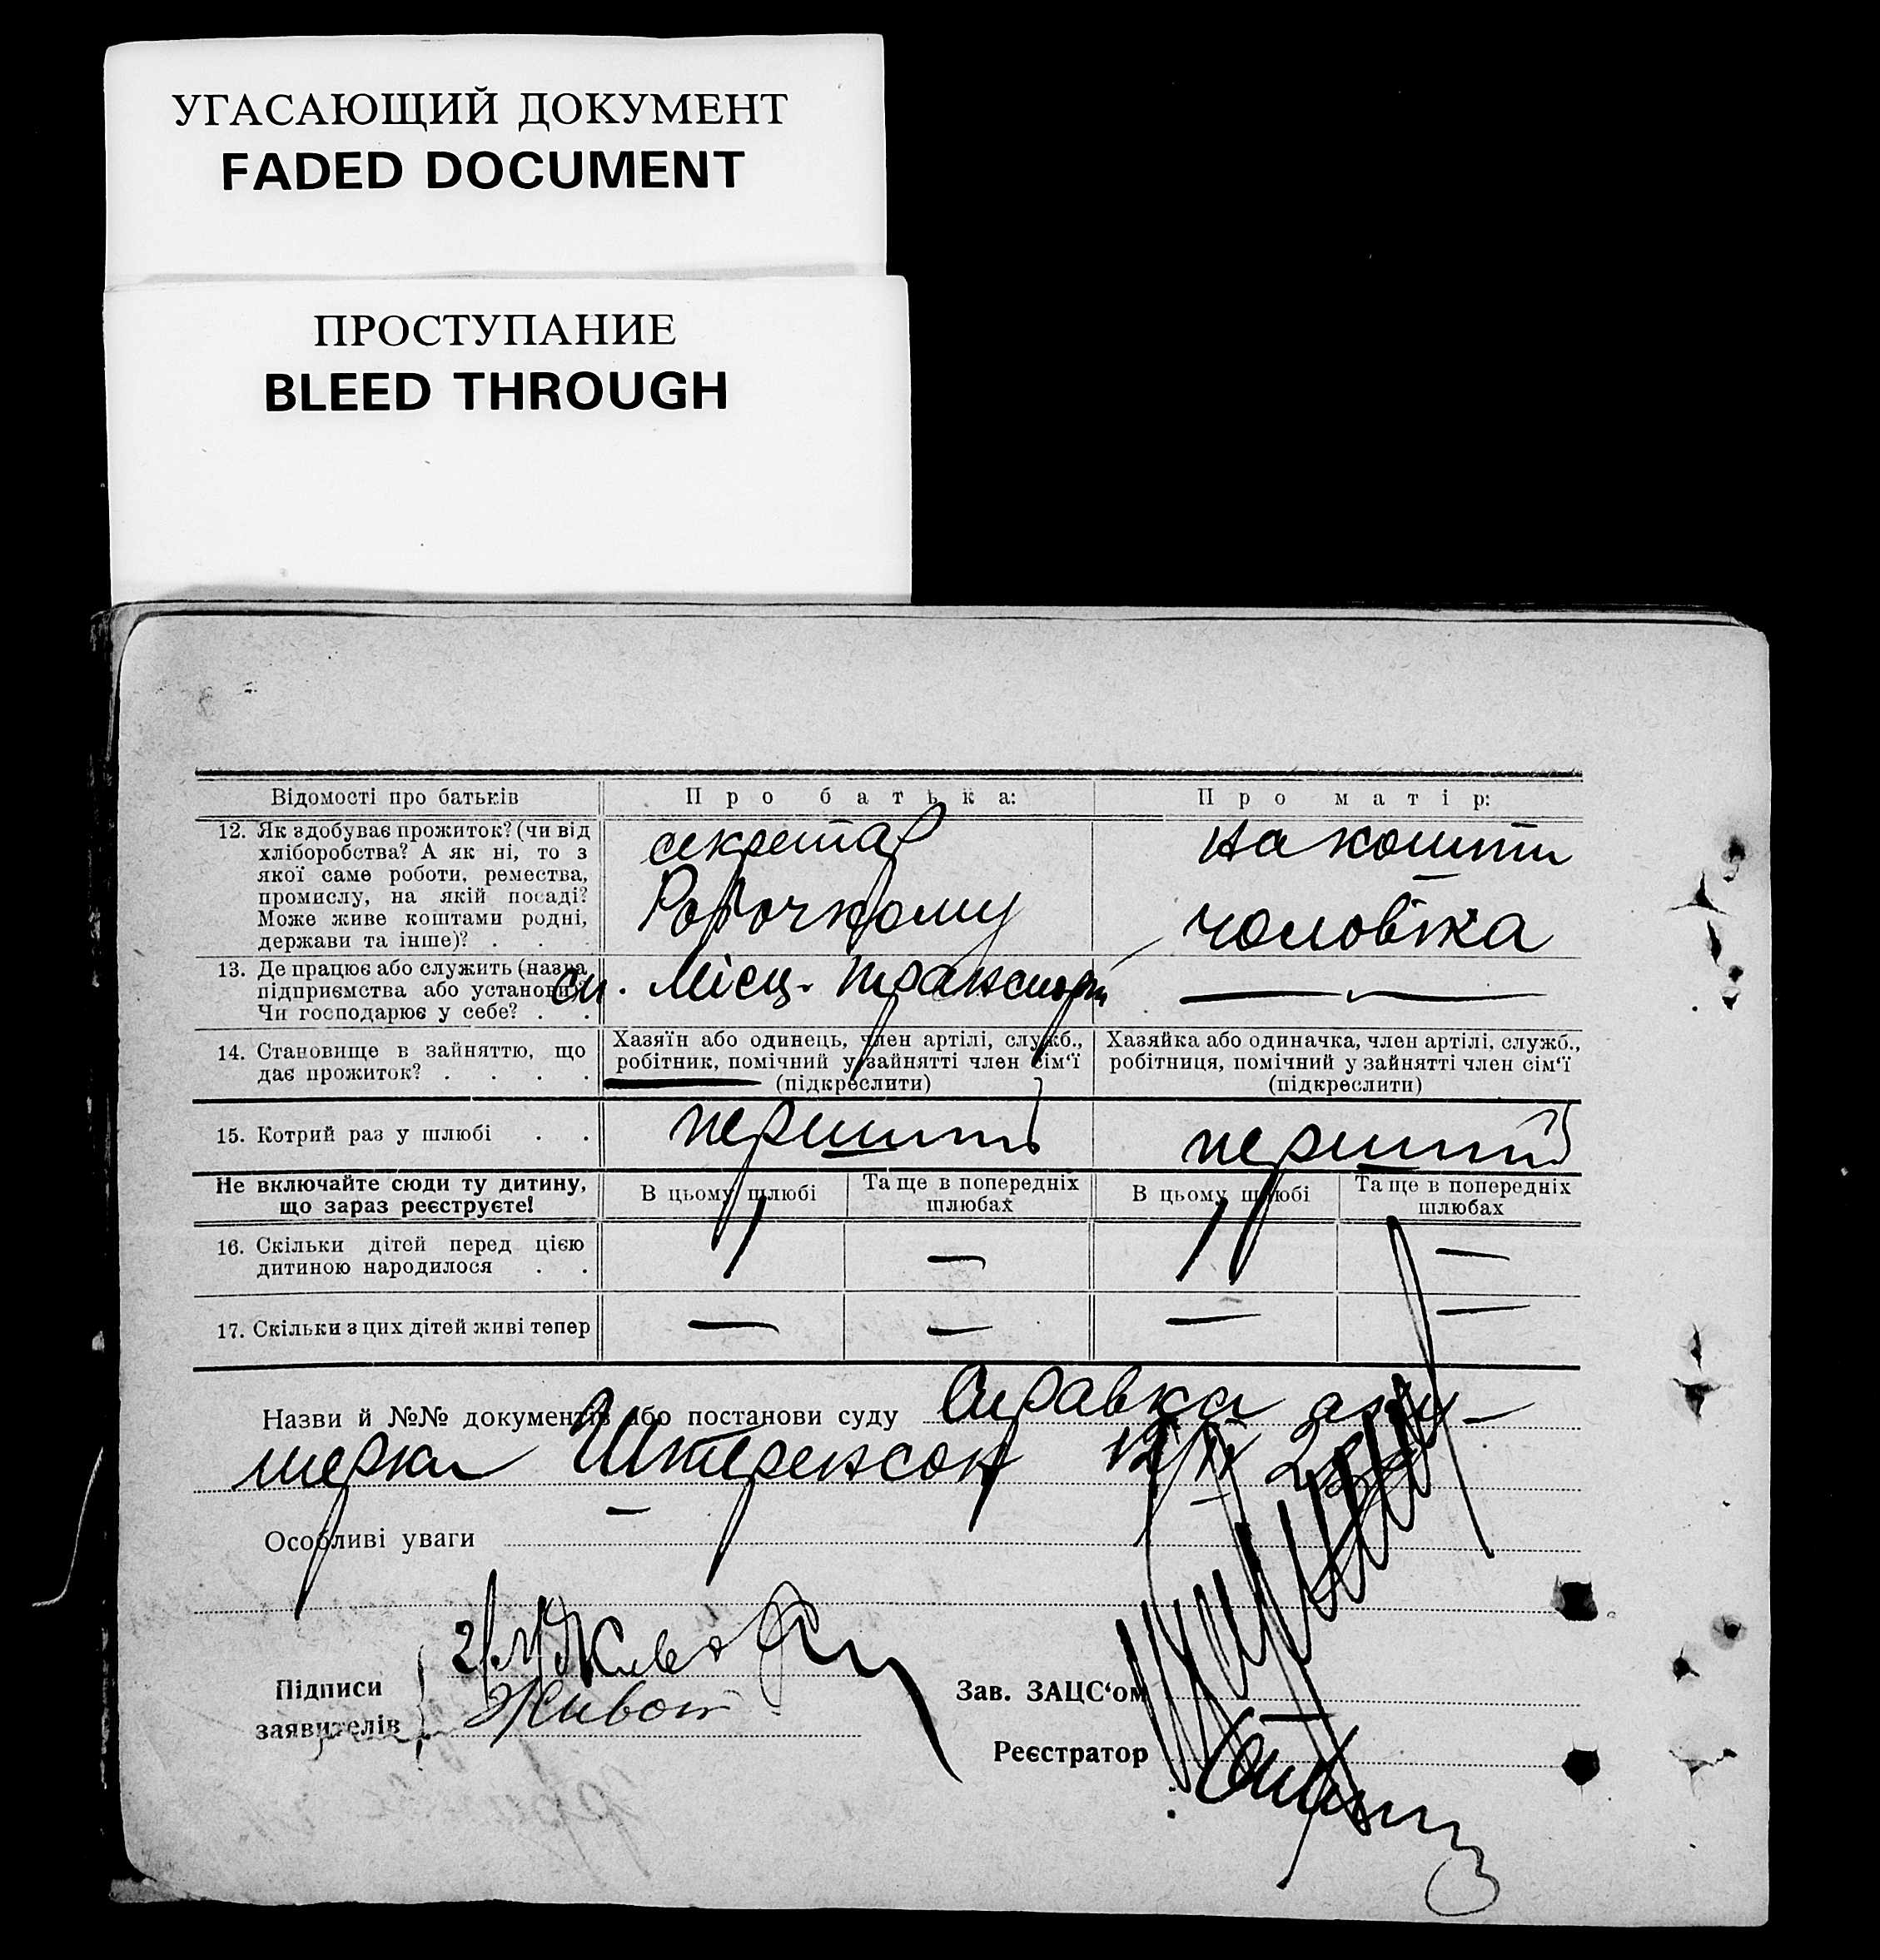 УГАСАЮЩИЙ ДОКУМЕНТ
FADED DOCUMENT
ПРОСТУПАНИЕ
BLEED THROUGH
Відомості про батьків
Про батька:
Про матір:
12. Як здобуває прожиток? (чи від
хліборобства? А як ні, то з
якої саме роботи, ремества,
промислу, на якій посаді?
Може живе коштами родні,
держави та інше)? . . .
секретар
Робочкому
на кошти
чоловіка
13. Де працює або служить (назва
підприємства або установи)?
Чи господарює у себе? . .
сп. Місц. транспорт
—
14. Становище в зайняттю, що
дає прожиток? . . . .
Хазяїн або одинець, член артілі, служб.,
робітник, помічний у зайнятті член сім‘ї
(підкреслити)
Хазяйка або одиначка, член артілі, служб.,
робітниця, помічний у зайнятті член сім‘ї
(підкреслити)
15. Котрий раз у шлюбі . .
перший
перший
Не включайте сюди ту дитину,
що зараз реєструєте!
В цьому шлюбі
Та ще в попередніх
шлюбах
В цьому шлюбі
Та ще в попередніх
шлюбах
16. Скільки дітей перед цією
дитиною народилося . .
1
—
1
—
17. Скільки з цих дітей живі тепер
—
—
—
—
Назви й №№ документів або постанови суду Справка аку-
шерки Штеренсон
Особливі уваги
Підписи
заявителів
Живот
Зав. ЗАЦС‘ом
Реєстратор